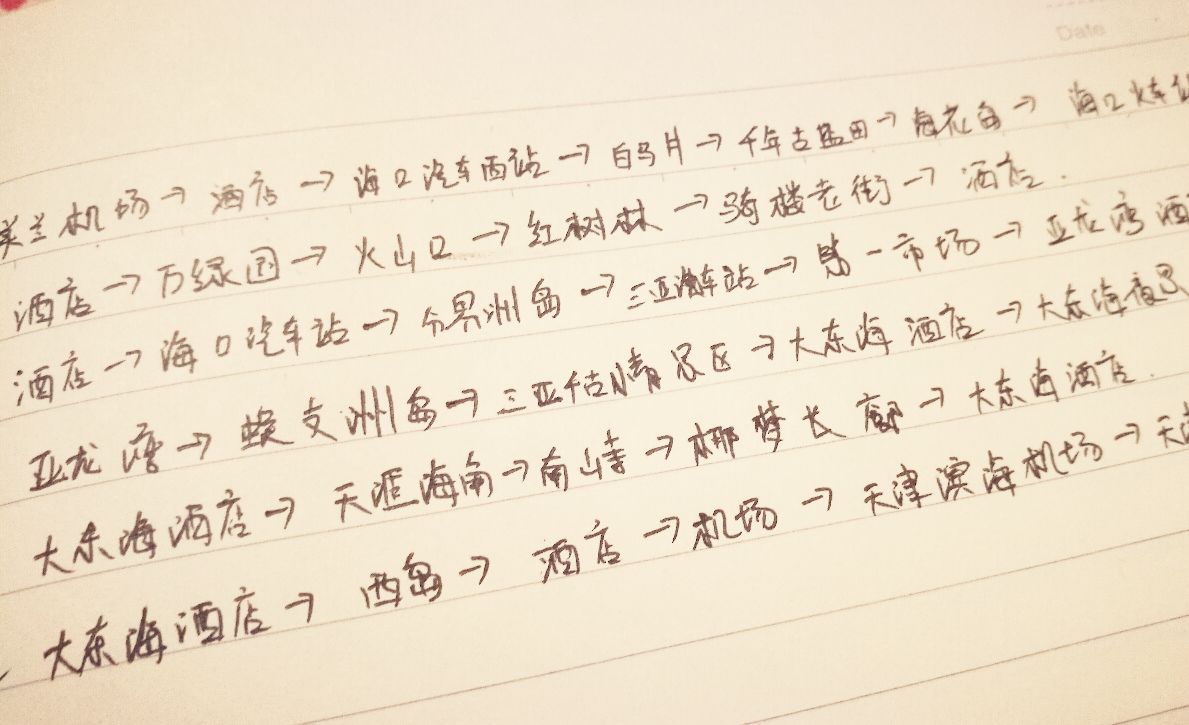 Date
美兰机场→酒店→海口汽车西站→白马井→千年古盐田→海花岛→海口火车
酒店→万绿园→火山口→红树林→骑楼老街→酒店.
酒店→海口汽车站→分界洲岛→三亚汽车站→第一市场→亚龙湾酒
亚龙湾→蜈支洲岛→三亚千古情景区→大东海酒店→大东海夜
大东海酒店→天涯海南→南山寺→椰梦长廊→大东海酒店.
大东海酒店→西岛→酒店→机场→天津滨海机场→天